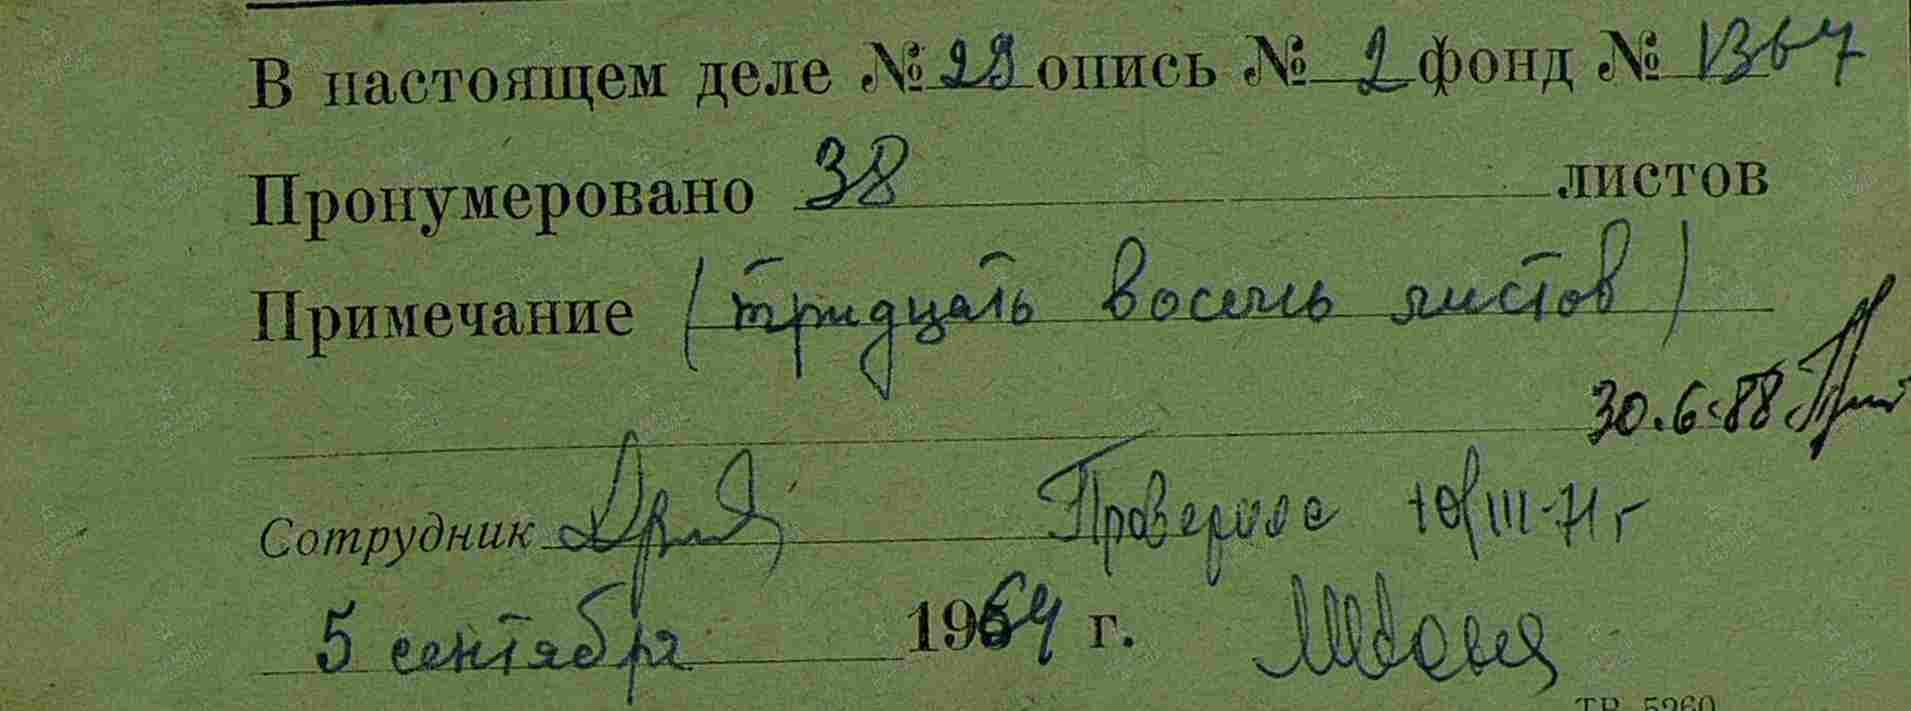 В настоящем деле № 29 опись № 2 фонд № 1367
Пронумеровано 38 листов
Примечание (тридцать восемь листов)
30.6.88
Сотрудник Проверила 10/III-71 г
5 сентября 1964 г.